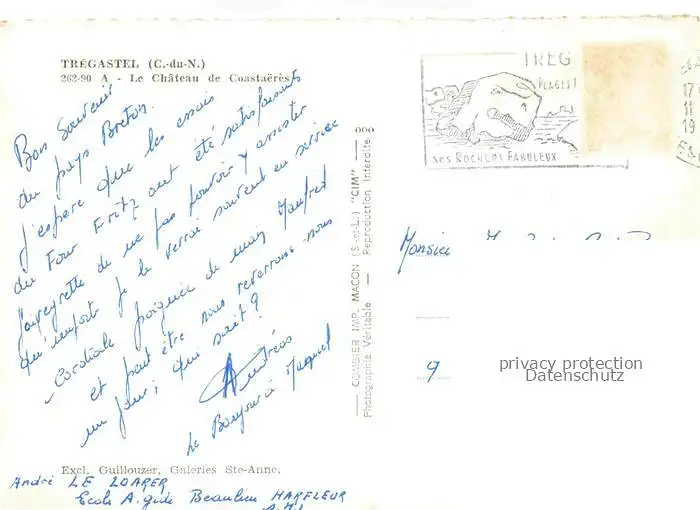 TRÉGASTEL (C.-du-N.)
262-90 A - Le Château de Coastaérès
Bon Souvenir
du pays Breton.
J'espère que les essais
du Four Fritz ont été satisfaisants
de ne pas pouvoir y assister
je le verrai souvent en service
Cordiale poignée de main Manfred
et peut être nous reverrons-nous
un jour; qui sait ?
Andréas
le Bonjour à
Excl. Guillouzer, Galeries Ste-Anne.
André LE LOARER
Ecole A. gide Beaulieu HARFLEUR
000
COMBIER IMP. MACON (S.-et-L.) "CIM"
Photographie Véritable - Reproduction Interdite
TREG
PLAGES
SES ROCHERS FABULEUX
17
Monsieur
9
privacy protection
Datenschutz